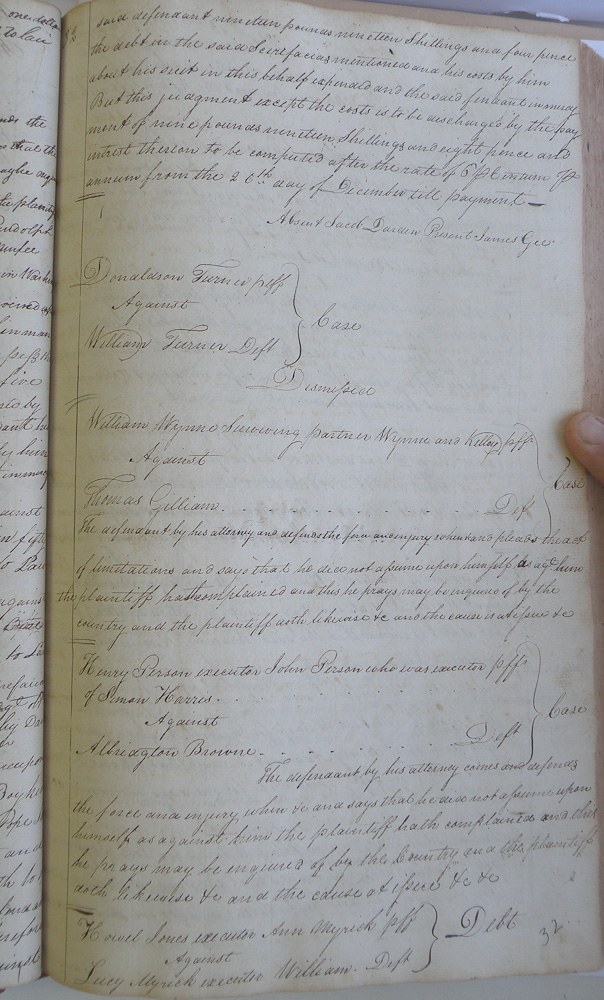 said defendant nineteen pounds nineteen Shillings and four pence
the debt in the said Scerefacias mentioned and his costs by him
about his suit in this behalf expended and the said fendant in mercy
But this judgment except the costs is to be discharged by the pay
ment of nine pounds nineteen Shillings and eight pence and
intrest thereon to be computed after the rate of 6 p Centum p
annum from the 26th day of December till payment—
Absent Jacob Darden Present James Gee
Donaldson Turner plff
Against
Case
William Turner Deft
Dismissed
William Wynne Surviving partner Wynne and Kelley plff
Against
Case
Thomas Gilliam . . . . . . . . . . Deft
The defendant by his attorney and defends the force an injury when and pleads the act
of limitations and says that he did not assume upon himself as agt him
the plaintiff hath complained and this he prays may be inquired of by the
country and the plaintiff doth likewise &c and the cause is at issue &c
Henry Person executor John Person who was executor plff
of Simon Harris . .
Against
Case
Albridgton Browne . . . . . . . Deft
The defendant by his attorney comes and defends
the force and injury when &c and says that he did not assume upon
himself as against him the plaintiff hath complained and this
he prays may be enquired of by the Country and the plaintiff
doth likewise &c and the cause at issue &c &c
Howel Jones executor Ann Myrick plff
Against
Debt
Lucy Myrick executor William - Deft
32